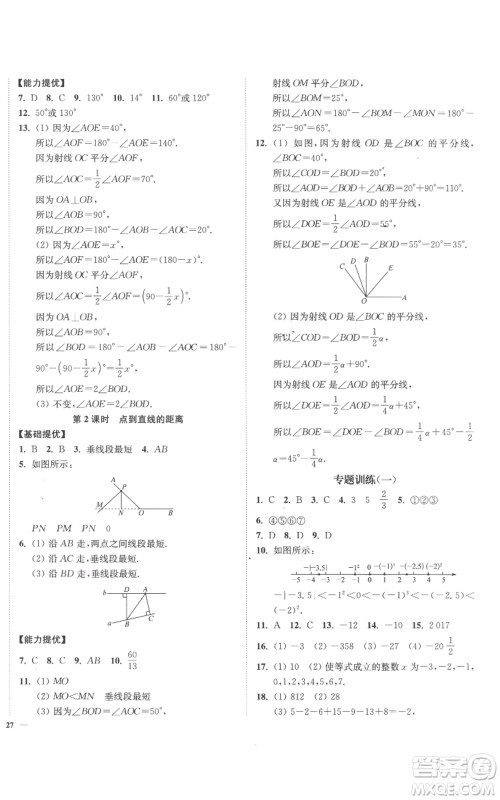 【能力提优】
7. D 8. C 9. 130° 10. 14° 11. 60°或 120°
12. 50°或 130°
13. (1) 因为∠AOE=40°,
所以∠AOF=180°-∠AOE=140°.
因为射线 OC 平分∠AOF,
所以∠AOC=1/2∠AOF=70°.
因为 OA⊥OB,
所以∠AOB=90°.
所以∠BOD=180°-∠AOC-∠AOB=20°.
(2) 因为∠AOE=x°,
所以∠AOF=180°-∠AOE=(180-x)°.
因为射线 OC 平分∠AOF,
所以∠AOC=1/2∠AOF=(90-1/2x)°.
因为 OA⊥OB,
所以∠AOB=90°.
所以∠BOD=180°-∠AOB-∠AOC=180°-
90°-(90-1/2x)°=1/2x°.
(3) 不变,∠AOE=2∠BOD.
第 2 课时 点到直线的距离
【基础提优】
1. B 2. B 3. 垂线段最短 4. AB
5. 如图所示:
A P
M N O B
PN PM PN 0
6. (1) 沿 AB 走,两点之间线段最短.
(2) 沿 AC 走,垂线段最短.
(3) 沿 BD 走,垂线段最短.
b D A
a B C
【能力提优】
7. C 8. C 9. AB 10. 60/13
11. (1) MO
(2) MO<MN 垂线段最短
(3) 因为∠BOD=∠AOC=50°,
27
射线 OM 平分∠BOD,
所以∠BOM=25°.
所以∠AON=180°-∠BOM-∠MON=180°-
25°-90°=65°.
12. (1) 如图,因为射线 OD 是∠BOC 的平分线,
所以∠COD=∠BOD=20°.
所以∠AOD=∠AOB+∠BOD=110°.
又因为射线 OE 是∠AOD 的平分线,
所以∠DOE=1/2∠AOD=55°.
所以∠BOE=∠DOE-∠BOD=35°.
B
D E
C
O A
(2) 因为射线 OD 是∠BOC 的平分线,
所以∠COD=∠BOD=1/2α.
所以∠AOD=1/2α+90°.
因为射线 OE 是∠AOD 的平分线,
所以∠DOE=1/2∠AOD=1/4α+45°.
所以∠BOE=∠DOE-∠BOD=1/4α+45°-1/2
α=45°-1/4α.
专题训练(一)
1. C 2. B 3. C 4. 3 5 2/3 5. ①②③
6. ④⑤⑥⑦
7. D 8. D 9. B
10. 如图所示:
-|-3.5| -1² 0 -(-1) -(-2.5) (-2)²
-5 -4 -3 -2 -1 0 1 2 3 4 5
-|-3.5|<-1²<0<-(-1)<-(-2.5)<(-2)²
11. A 12. C 13. -11 14. -10 15. 2 017
16. (1) -2 (2) -358 (3) -27 (4) -1/2
17. (1) 10 (2) 使等式成立的整数 x 为-5,-4,-3,-2,-1,
0,1,2,3,4,5
18. (1) 812 (2) 28
(3) 5-2-5+9-16+4+9+6=10.